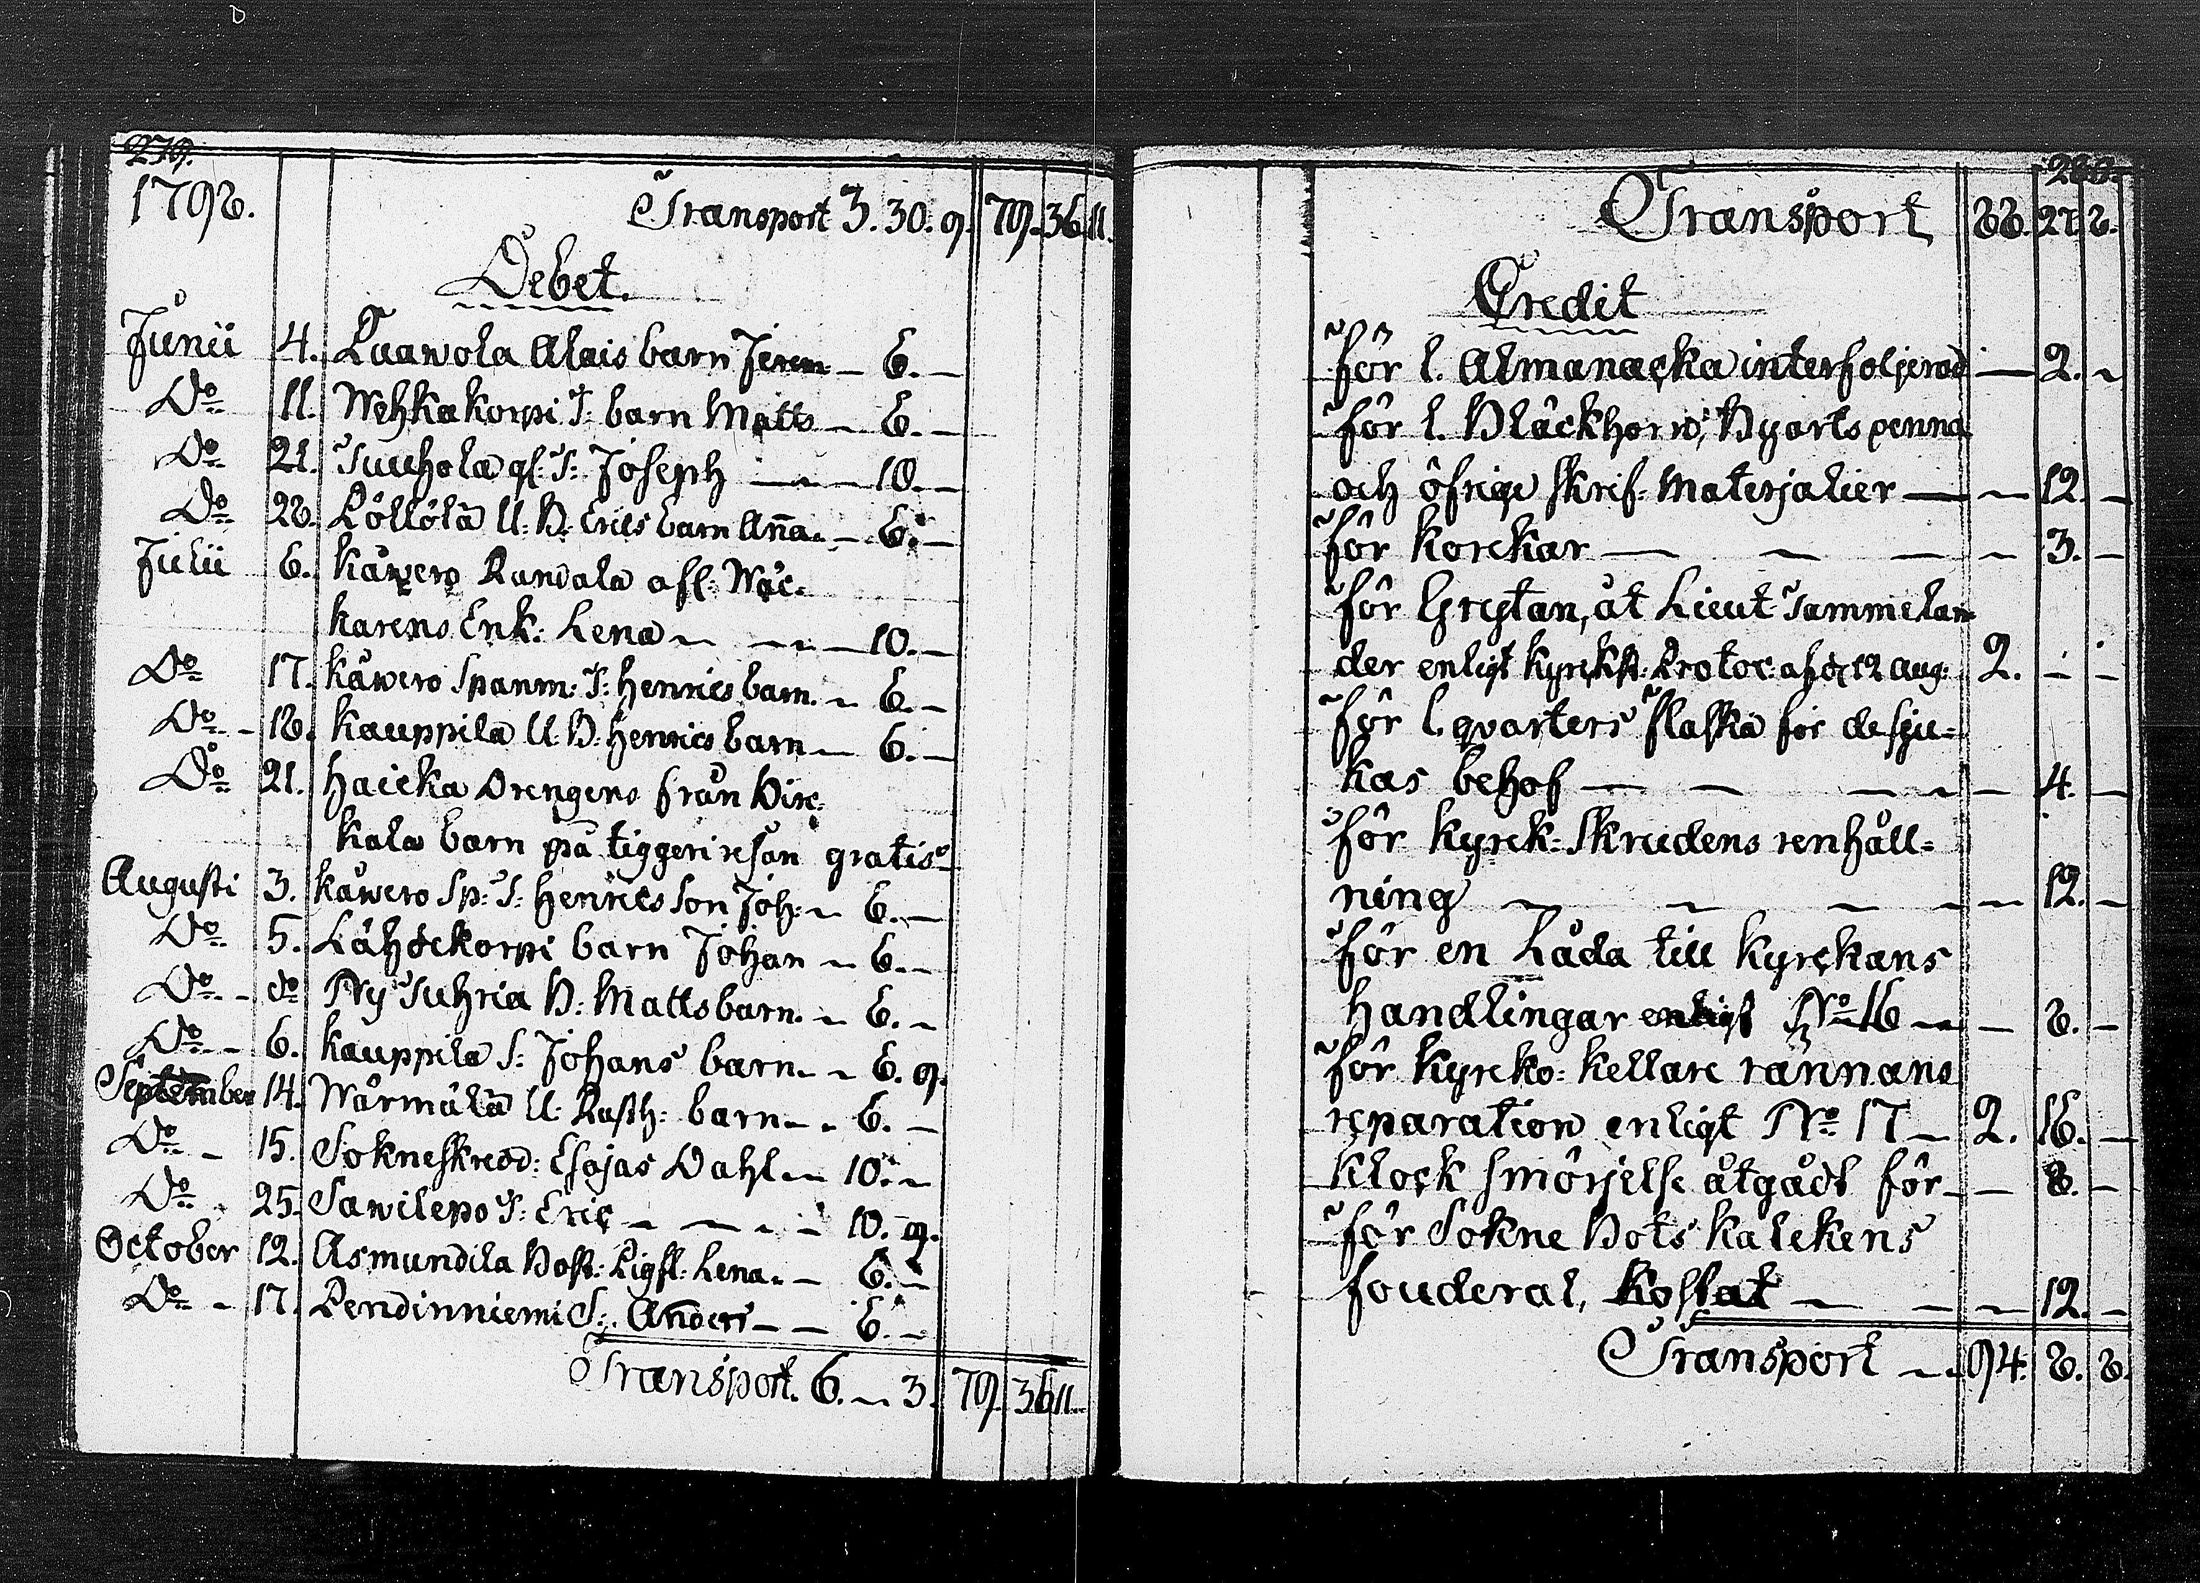 279.
1798. Transport 3. 30. 9. 79. 36. 11.
Debet.
Junii 4. Luawola Alais barn Jerem — 6. —
Do 11. Wehkakorpi T: barn Matts — 6. —
Do 21. Tuuhola gl: S: Joseph — 10. —
Do 28. Löllölä U: B: Erics barn Anna. — 6. —
Julii 6. Käwero Randala afl: Wäc-
karens Enk: Lena — 10. —
Do 17. Käwero Spanm: T: Henrics barn. — 6. —
Do 18. Kauppila U: B: Henrics barn — 6. —
Do 21. Haicka Drengens från Birc-
kala barn på tiggeri resan gratis —
Augusti 3. Käwero Sp: S: Henrics Son Joh: — 6. —
Do 5. Lähdekorpi barn Johan — 6. —
Do do Ny Suhria B: Matts barn. — 6. —
Do 6. Kauppila S: Johans barn — 6. 9.
September 14. Wärmälä U: Rusth: barn — 6. —
Do 15. Sokneskredd: Esajas Dahl — 10. —
Do 25. Sawilepo T: Eric — 10. 9.
October 12. Asmundila Bost: Pigfl: Lena. — 6. —
Do 17. Pendinniemi S: Anders — 6. —
Transport. 6. — 3. 79. 36 11.
280.
Transport 88. 27. 8.
Credit
för 1. Almanacka interfoljerad — 2. —
för 1. Bläckhorn, Byarts penna
och öfrige skrif: Materjalier — 12. —
för korckar — 3. —
för Grystan, åt Lieut: Tammelan-
der enligt Kyrckst: Protoc: af d: 12 Aug: 2. — —
för 1. qvarters flaska för de sju-
kas behof — 4. —
för Kyrck: Skrudens renhåll-
ning — 12. —
för en Låda till Kyrckans
Handlingar enligt No 16 — 8. —
för Kyrcko: kellare rännans
reparation enligt No 17 — 2. 16. —
Klock smörjelse åtgådt för — 8. —
för Sokne Bots Kalckens
fouderal, kostat — 12. —
Transport — 94. 8. 8.